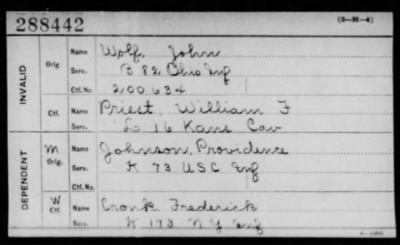 288442 (3-H-4)
INVALID
Orig. Name Wolf, John
Serv. B 82 Ohio Inf
Ctf. No. 200634
Ctf. Name Priest, William F
Serv. L 16 Kans Cav
DEPENDENT
M Orig. Name Johnson, Providence
Serv. K 73 USC Inf
Ctf. No.
W Ctf. Name Cronk Frederick
Serv. K 173 N Y Inf